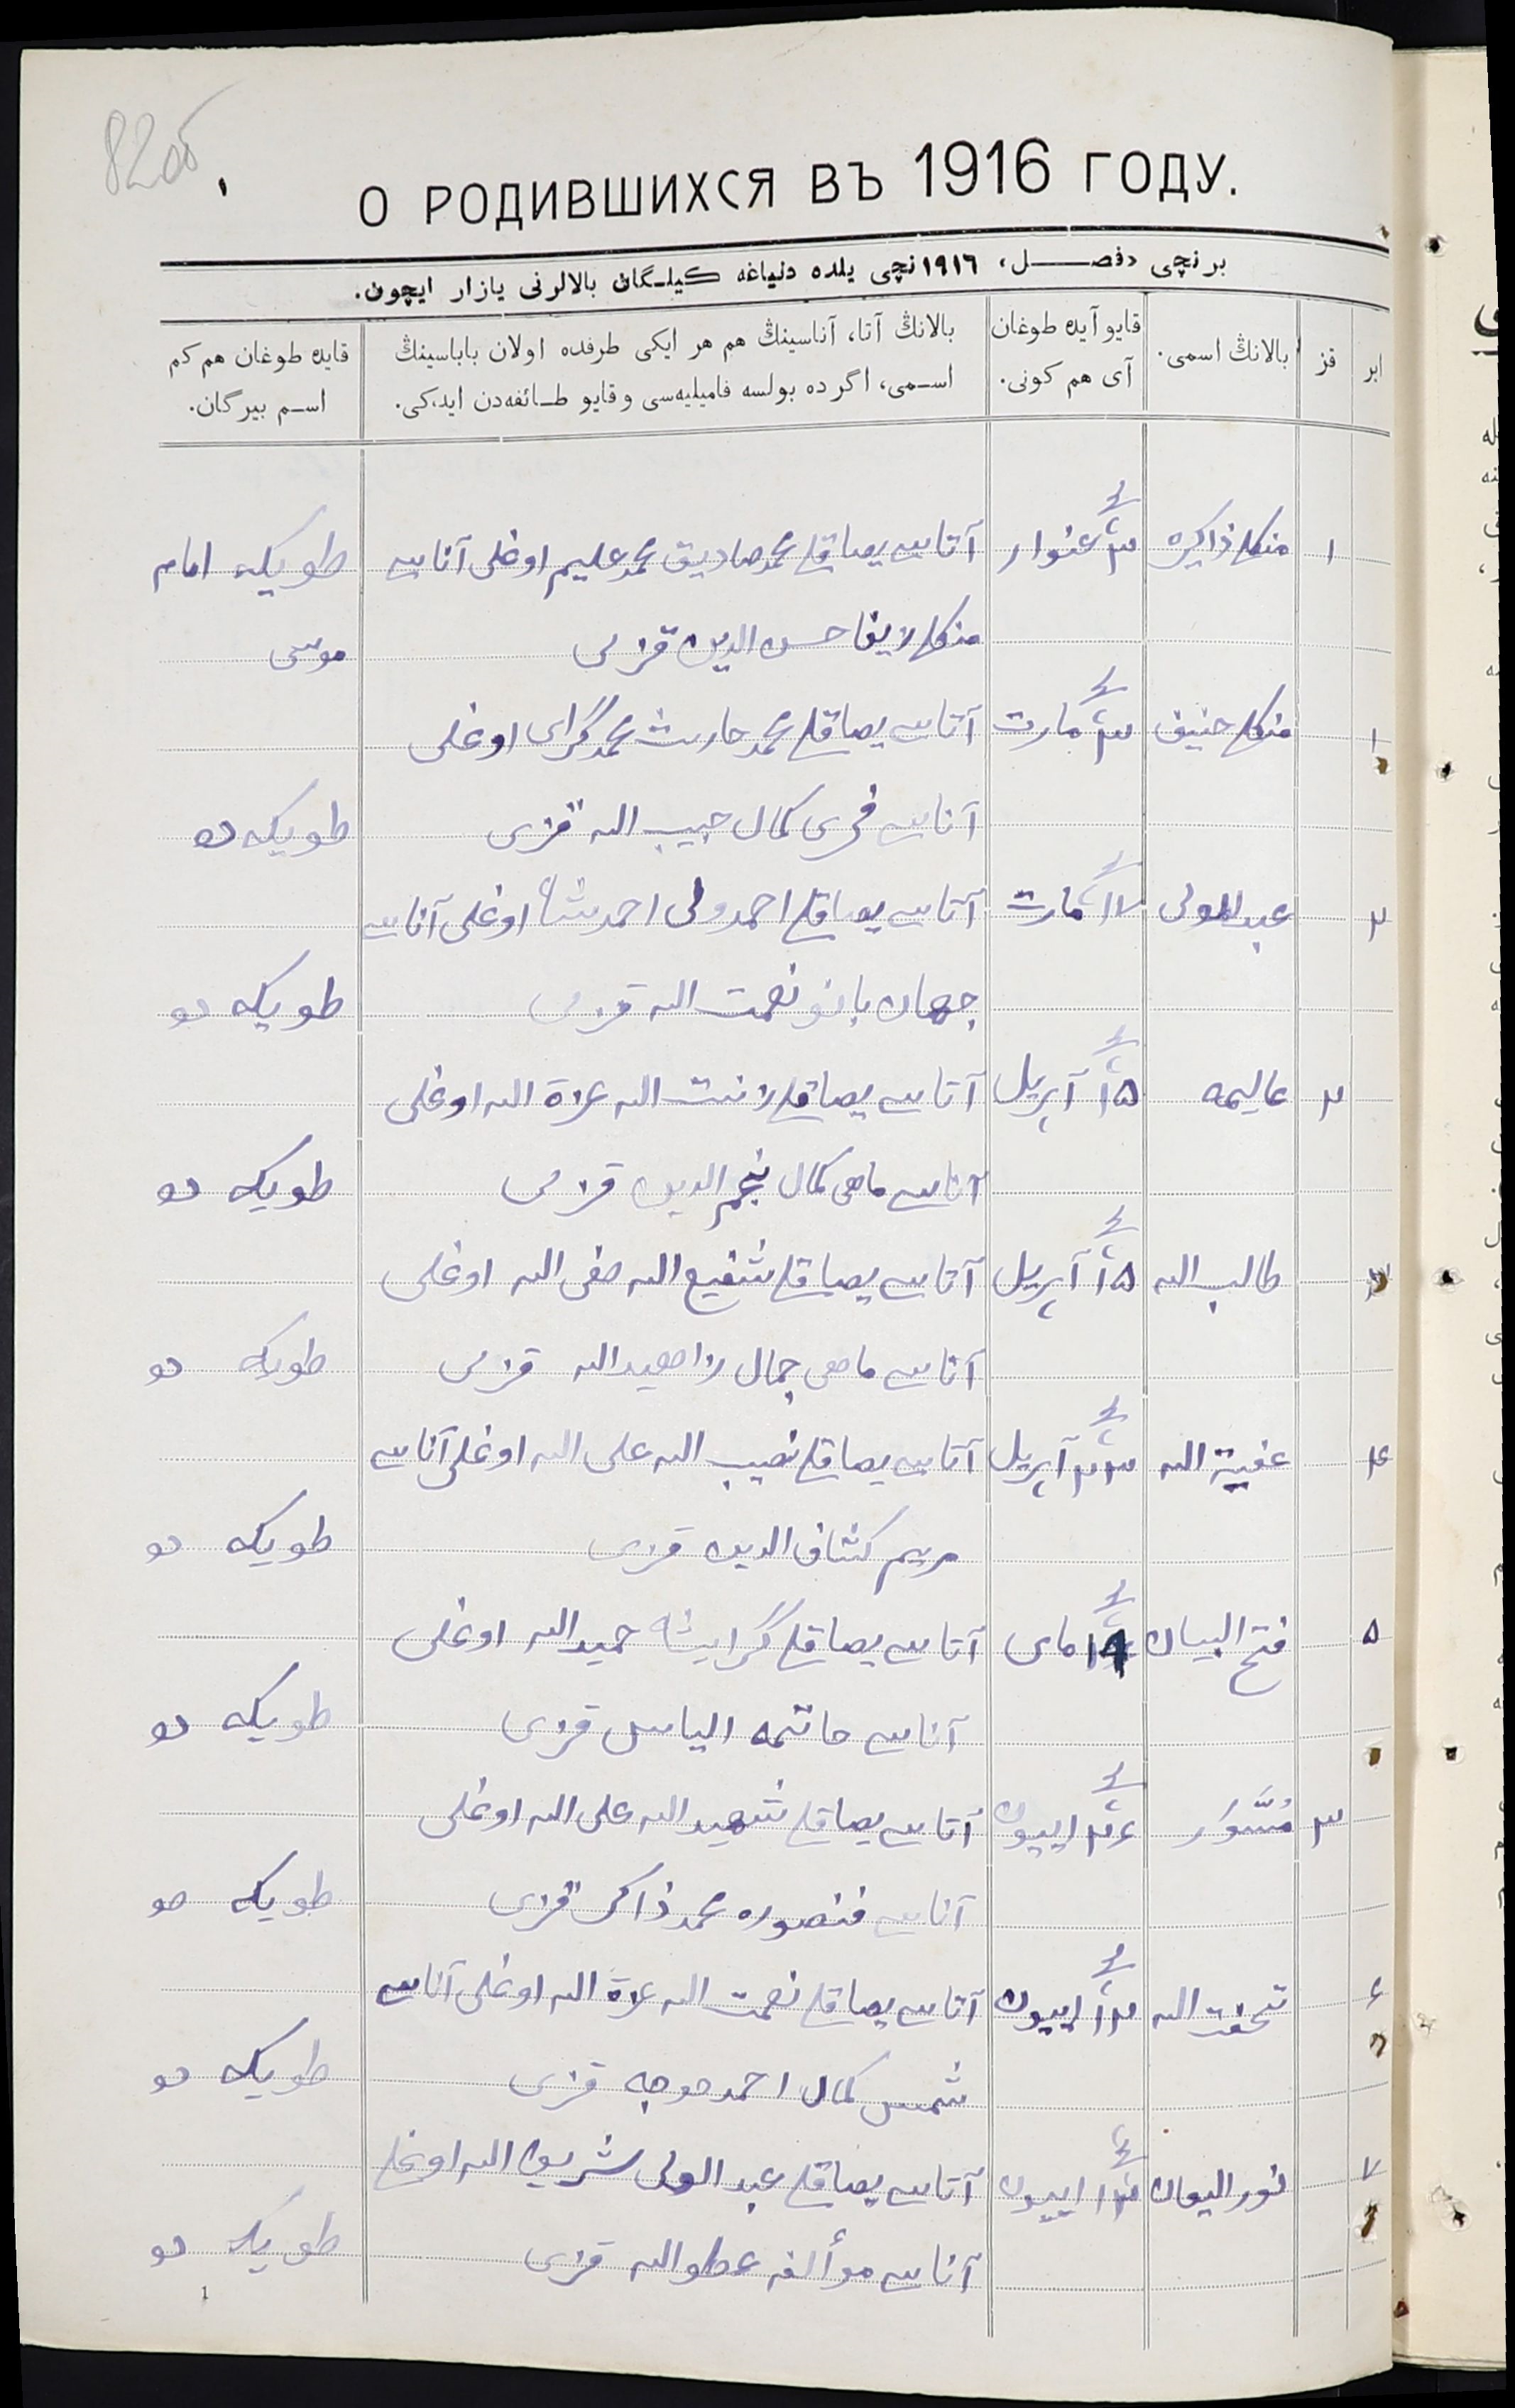 820б
О РОДИВШИХСЯ ВЪ 1916 ГОДУ.
برنچی «فصل» ١٩١٦ نچی یلده دنیاغه کیلگان بالالرنی یازار ایچون.
ایر
قز
بالانڭ اسمی.
قایو آیده طوغان آی هم کونی.
بالانڭ آتا، آناسینڭ هم هر ایکی طرفده اولان باباسینڭ
اسمی، اگرده بولسه فامیلیه‌سی و قایو طائفه‌دن ایدکی.
قایده طوغان هم کم
اسم بیرگان.
١ منکلذاکره ٣ غنوار آتاسی یصاقلی محمدصادیق محمدعلیم اوغلی آناسی طویکه امام
حسن الدین قزی موسی
١ منکلحنیف ٣ مارت آتاسی یصاقلی محمدحارث محمدگرای اوغلی
آناسی فخری کمال حبیب الله قزی طویکه ده
٢ عبدالمولی ١٧ مارت آتاسی یصاقلی احمدولی احمدشاه اوغلی آناسی
جهان بانو نعمت الله قزی طویکه ده
٢ عالیمه ١٥ آپریل آتاسی یصاقلی عزة الله اوغلی
آناسی ماهی کمال نجم الدین قزی طویکه ده
٣ طالب الله ١٥ آپریل آتاسی یصاقلی شفیع الله صفی الله اوغلی
آناسی ماهی جمال قزی طویکه ده
٤ ٢٣ آپریل آتاسی یصاقلی نصیب الله علی الله اوغلی آناسی
مریم کشاف الدین قزی طویکه ده
٥ فتح البیان ١٩ مای آتاسی یصاقلی گرایشاه حمیدالله اوغلی
آناسی حاتمه الیاس قزی طویکه ده
٣ مُنَوَّر ٢٤ اییون آتاسی یصاقلی شهیدالله علی الله اوغلی
آناسی منصوره محمدذاکر قزی طویکه ده
٦ تحفت الله ١٢ اییون آتاسی یصاقلی نعمت الله عزة الله اوغلی آناسی
شمس کمال احمد قزی طویکه ده
٧ نورالیمان ١٣ اییون آتاسی یصاقلی عبدالولی شریف الله اوغلی
آناسی مؤألفه عطوالله قزی طویکه ده
1